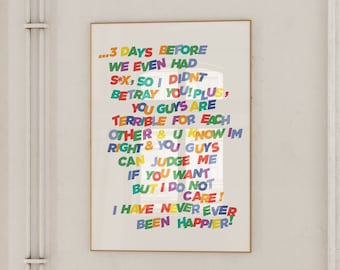 ...3 DAYS BEFORE
WE EVEN HAD
S*X, SO I DIDNT
BETRAY YOU! PLUS,
YOU GUYS ARE
TERRIBLE FOR EACH
OTHER & U KNOW IM
RIGHT & YOU GUYS
CAN JUDGE ME
IF YOU WANT
BUT I DO NOT
CARE!
I HAVE NEVER EVER
BEEN HAPPIER!